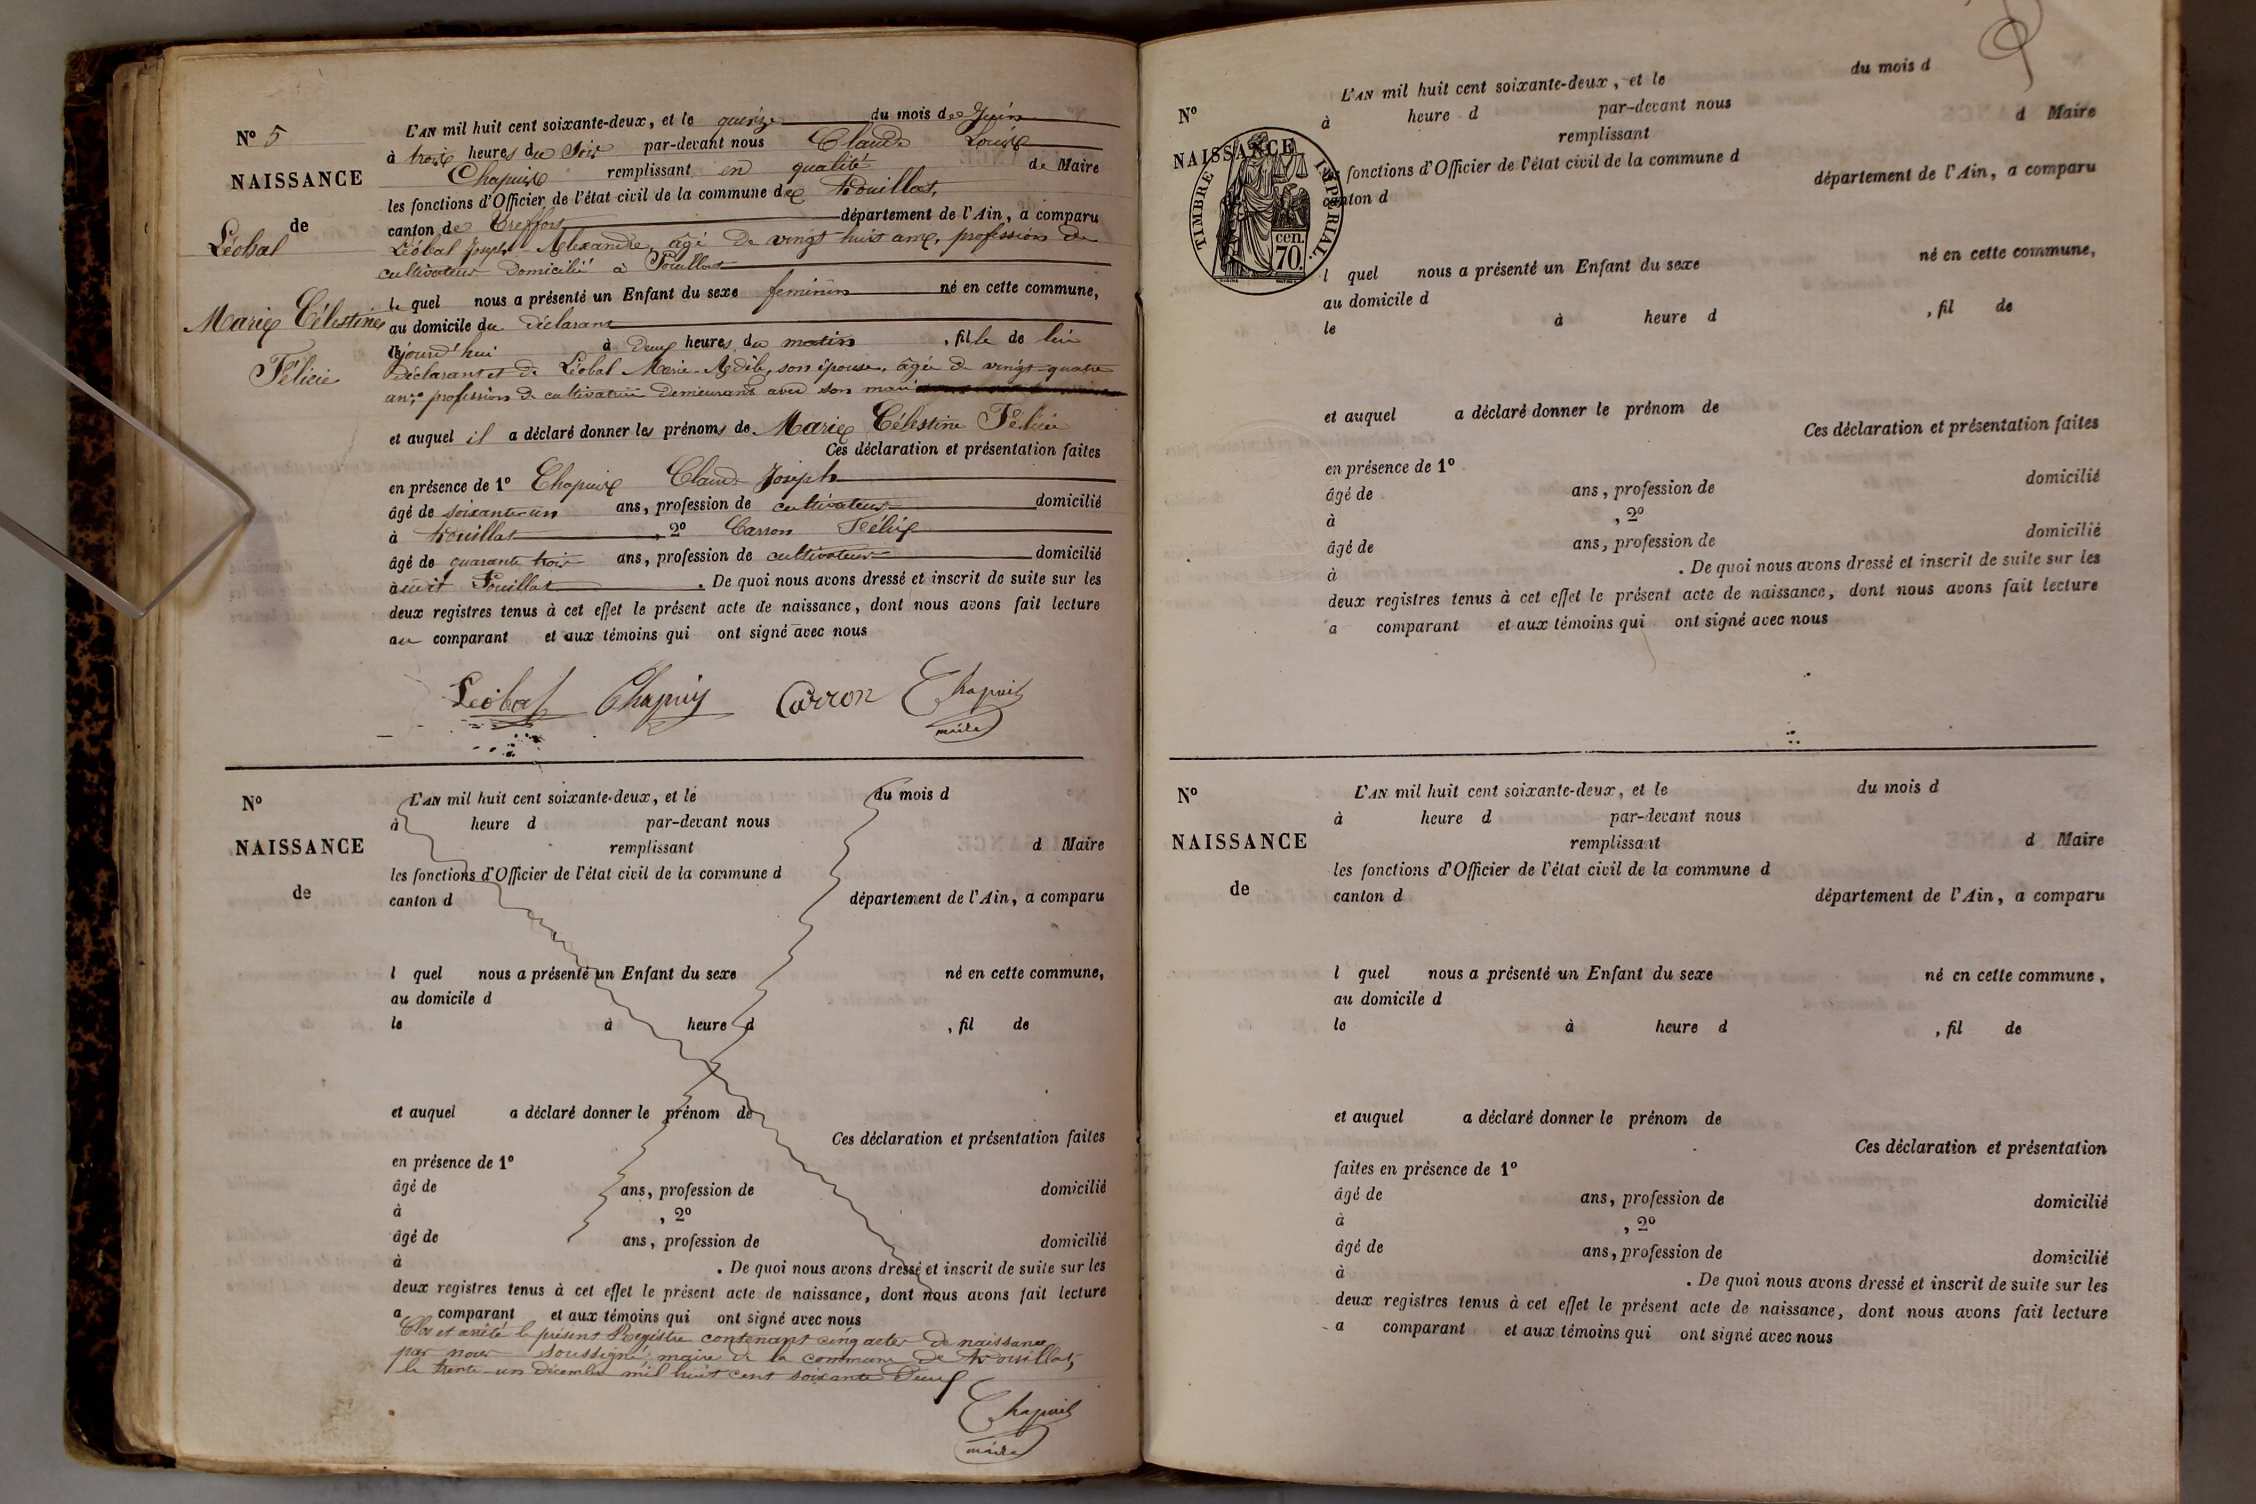 N° 5
NAISSANCE
de
Léobal
Marie Célestine
Félicie
L'AN mil huit cent soixante-deux, et le quinze du mois de Juin
à trois heures du Soir par-devant nous Claude Louis
Chapuis remplissant en qualité de Maire
les fonctions d'Officier de l'état civil de la commune de Pouillat,
canton de Treffort département de l'Ain, a comparu
Léobal Joseph Alexandre, âgé de vingt huit ans, profession de
cultivateur domicilié à Pouillat
le quel nous a présenté un Enfant du sexe feminin né en cette commune,
au domicile du déclarant
aujourd'hui à deux heures du matin, fille de lui
déclarant et de Léobal Marie Adèle, son épouse, âgée de vingt-quatre
ans, profession de cultivatrice demeurant avec son mari
et auquel il a déclaré donner les prénoms de Marie Célestine Félicie
Ces déclaration et présentation faites
en présence de 1° Chapuis Claude Joseph
âgé de soixante-un ans, profession de cultivateur domicilié
à Pouillat, 2° Carron Félix
âgé de quarante trois ans, profession de cultivateur domicilié
à Pouillat. De quoi nous avons dressé et inscrit de suite sur les
deux registres tenus à cet effet le présent acte de naissance, dont nous avons fait lecture
au comparant et aux témoins qui ont signé avec nous
Léobal Chapuis Carron Chapuis
maire
N°
NAISSANCE
de
L'AN mil huit cent soixante-deux, et le du mois d
à heure d par-devant nous
remplissant d Maire
les fonctions d'Officier de l'état civil de la commune d
canton d département de l'Ain, a comparu
l quel nous a présenté un Enfant du sexe né en cette commune,
au domicile d
le à heure d , fil de
et auquel a déclaré donner le prénom de
Ces déclaration et présentation faites
en présence de 1°
âgé de ans, profession de domicilié
à , 2°
âgé de ans, profession de domicilié
à . De quoi nous avons dressé et inscrit de suite sur les
deux registres tenus à cet effet le présent acte de naissance, dont nous avons fait lecture
a comparant et aux témoins qui ont signé avec nous
Clos et arrêté le présent Registre contenant cinq actes de naissance
par nous soussigné, maire de la commune de Pouillat,
le trente-un décembre mil huit cent soixante deux
Chapuis
maire
N°
NAISSANCE
TIMBRE IMPERIAL.
70. cen.
L'AN mil huit cent soixante-deux, et le du mois d
à heure d par-devant nous
remplissant d Maire
les fonctions d'Officier de l'état civil de la commune d
canton d département de l'Ain, a comparu
l quel nous a présenté un Enfant du sexe né en cette commune,
au domicile d
le à heure d , fil de
et auquel a déclaré donner le prénom de
Ces déclaration et présentation faites
en présence de 1°
âgé de ans, profession de domicilié
à , 2°
âgé de ans, profession de domicilié
à . De quoi nous avons dressé et inscrit de suite sur les
deux registres tenus à cet effet le présent acte de naissance, dont nous avons fait lecture
a comparant et aux témoins qui ont signé avec nous
N°
NAISSANCE
de
L'AN mil huit cent soixante-deux, et le du mois d
à heure d par-devant nous
remplissant d Maire
les fonctions d'Officier de l'état civil de la commune d
canton d département de l'Ain, a comparu
l quel nous a présenté un Enfant du sexe né en cette commune,
au domicile d
le à heure d , fil de
et auquel a déclaré donner le prénom de
Ces déclaration et présentation
faites en présence de 1°
âgé de ans, profession de domicilié
à , 2°
âgé de ans, profession de domicilié
à . De quoi nous avons dressé et inscrit de suite sur les
deux registres tenus à cet effet le présent acte de naissance, dont nous avons fait lecture
a comparant et aux témoins qui ont signé avec nous